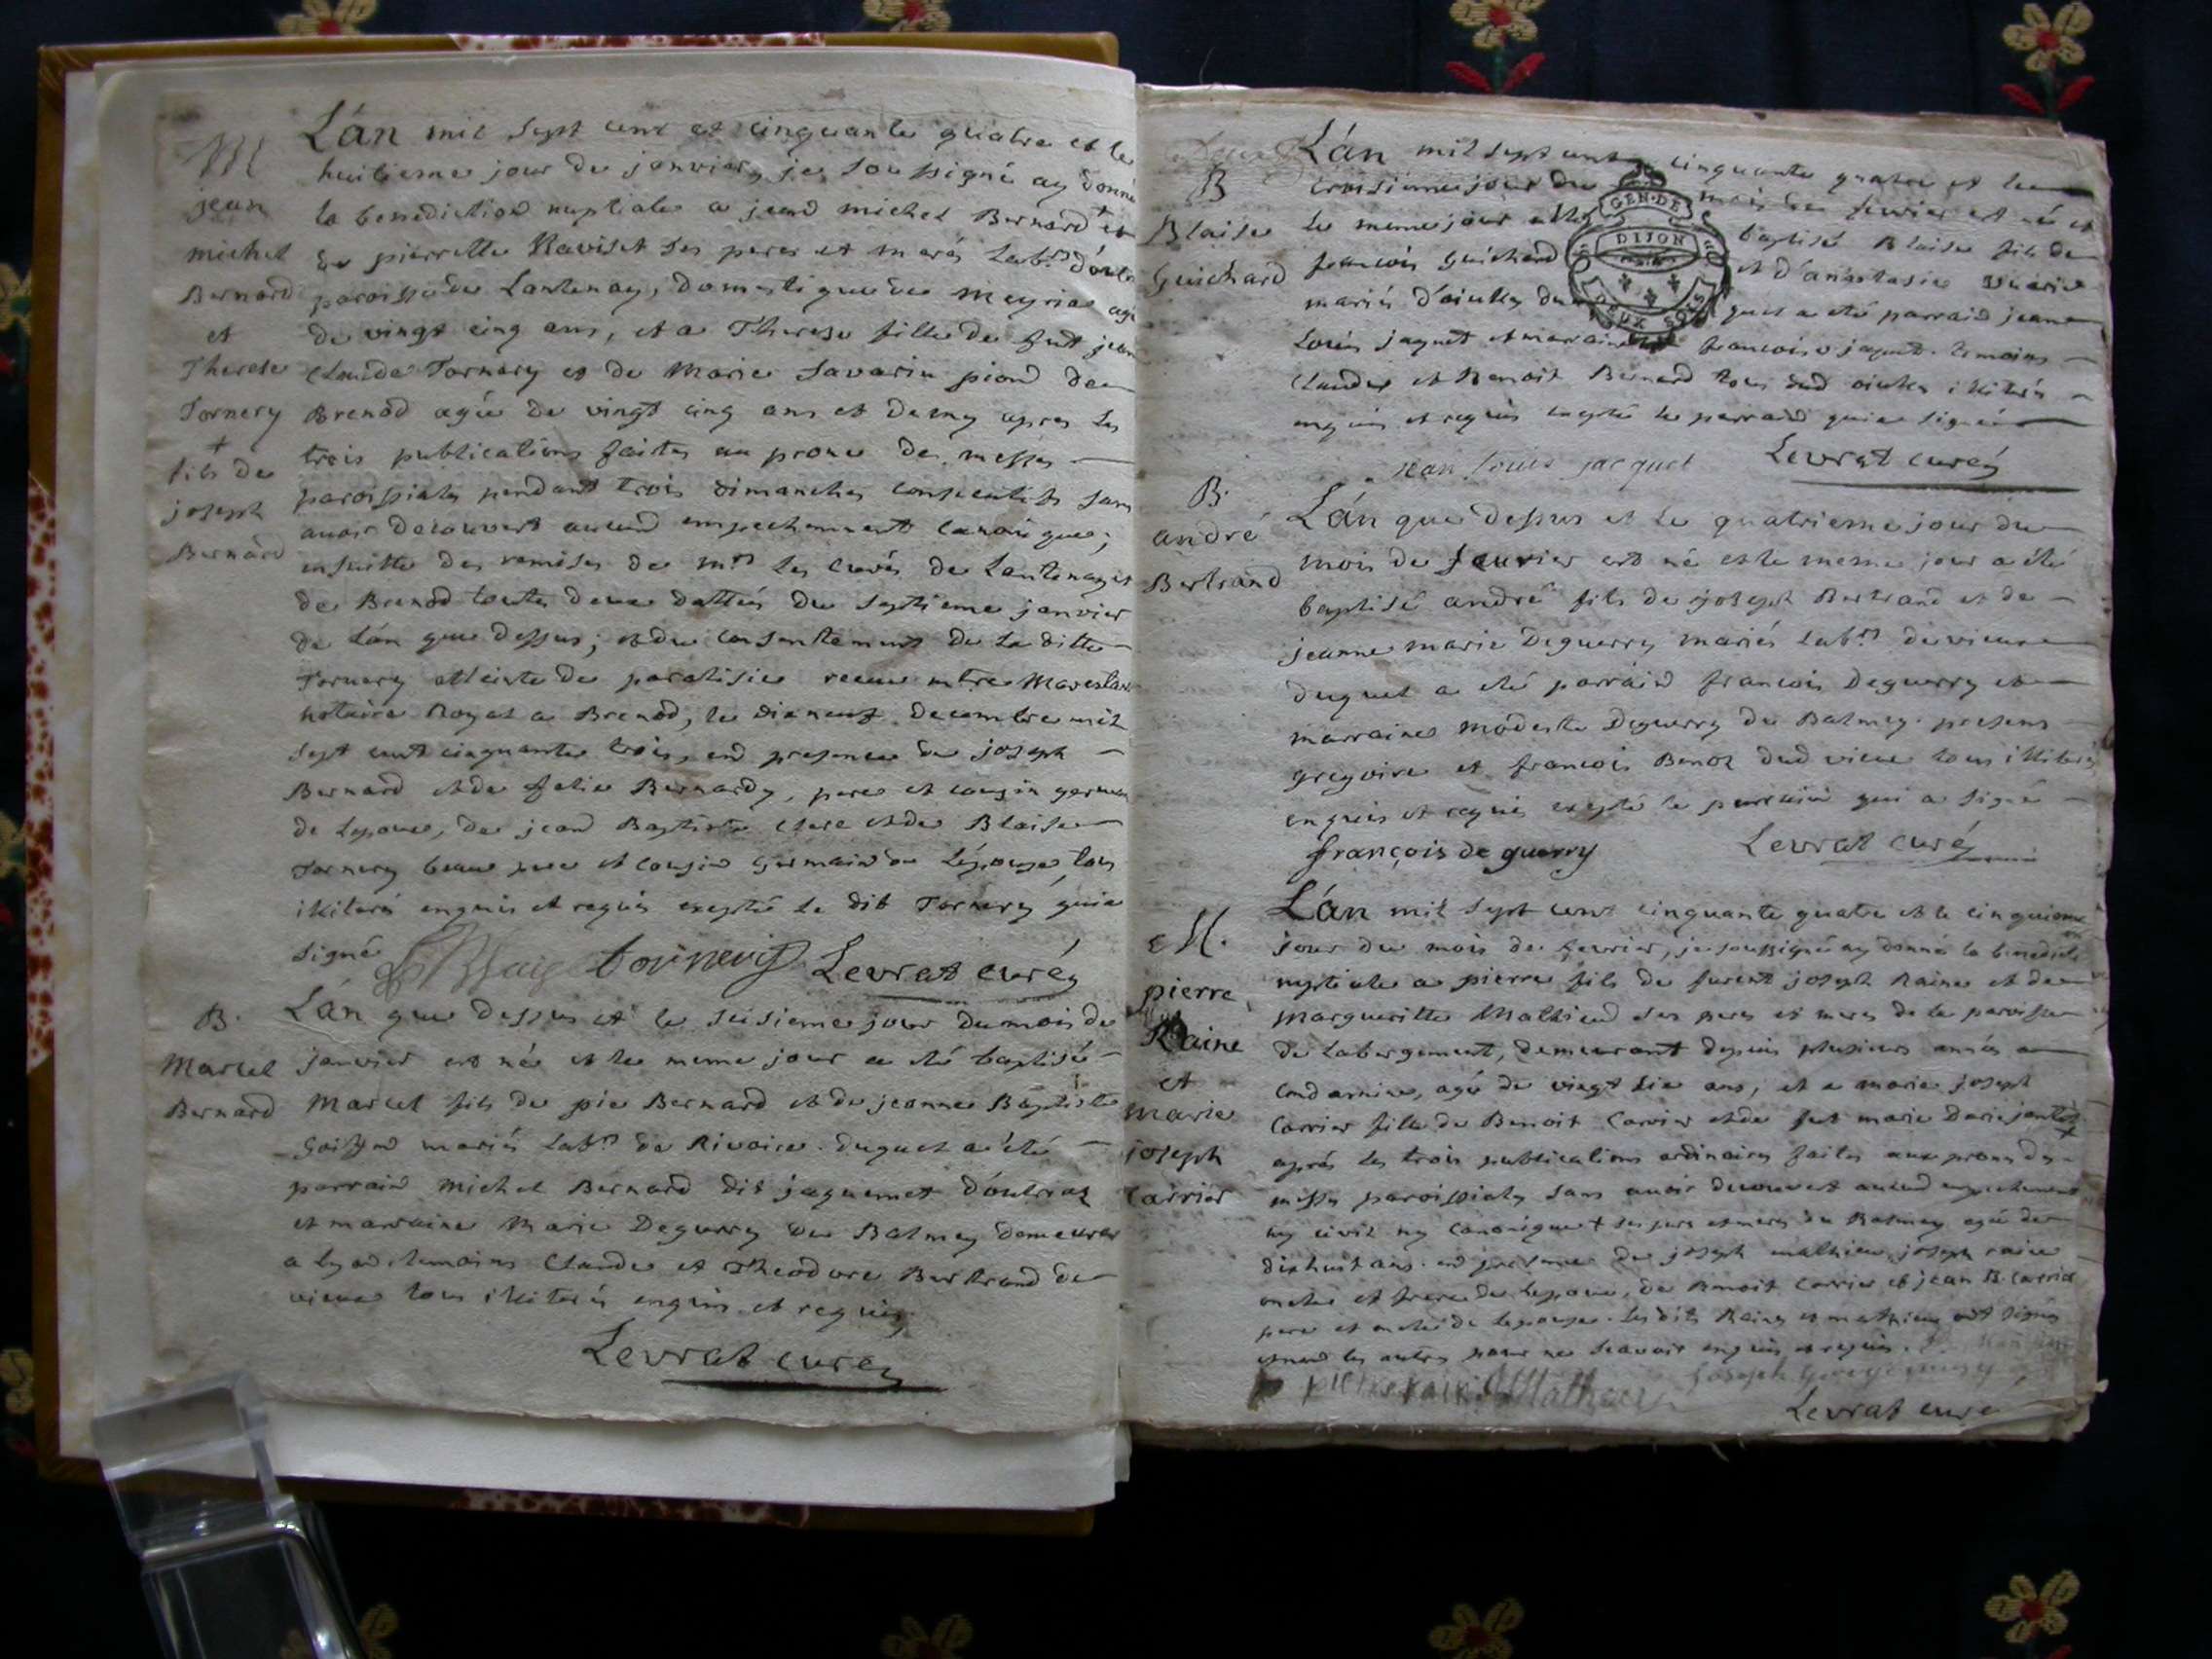 M
jean
michel
Bernard
et
Therese
Tornery
+
fils de
joseph
Bernard
L'an mil sept cent et cinquante quatre et le
huitieme jour de janvier, je soussigné ay donné
la benediction nuptiale a jean michel Bernard + et
de pierrette Raviset ses peres et meres lab.rs
paroisse de Lantenay, domestique de Meyriat agé
de vingt cinq ans, et a Therese fille de fut jean
Claude Tornery et de Marie Savarin
Brenod agée de vingt cinq ans et demy apres les
trois publications faites au prone des messes
paroissiales pendant trois dimanches consecutifs sans
avoir decouvert aucun empechement canonique;
ensuitte des remises de mrs les curés de Lantenay et
de Brenod toutes deux dattées du septieme janvier
de l'an que dessus; et du consentement de la ditte
Tornery atteinte de paralisie receu
notaire Royal a Brenod, le dix neuf decembre mil
sept cent cinquante trois, en presence de joseph
Bernard et de felix Bernardy, pere et cousin germain
de lepoux, de jean Baptiste et de Blaise
Tornery beau pere et cousin germain de l'epouse, tous
illiterés enquis et requis exepté le dit Tornery qui a
signé
Levrat curé
B.
Marcel
Bernard
L'an que dessus et le seisieme jour du mois de
janvier est né et le meme jour a été baptisé
Marcel fils de pie Bernard et de jeanne Baptiste
mariés lab.rs de Rivoire. duquel a été
parrain Michel Bernard dit jaquemet d'outriaz
et marraine Marie Deguerry du Balmey demeurant
a lyon temoins Claude et Theodore Bertrand de
vieux tous illiterés enquis et requis
Levrat curé
B
Blaise
Guichard
L'an mil sept cent cinquante quatre et le
troisieme jour du mois de fevrier est né et
le meme jour a été baptisé Blaise fils de
francois Guichard et d'anastasie
mariés d'oiselles duquel a été parrain jean
Louis jaquet et marraine francoise jaquet. temoins
Claude et Benoit Bernard tous illiterés
enquis et requis exepté le parrain qui a signé
GEN. DE
DIJON
DEUX SOLS
jean Louis jacquet
Levrat curé
B.
andré
Bertrand
L'an que dessus et le quatrieme jour du
mois de fevrier est né et le meme jour a été
baptisé andré fils de joseph Bertrand et de
jeanne marie Deguerry mariés lab.rs de vieux
duquel a été parrain francois Deguerry et
marraine modeste Deguerry du Balmey. presens
gregoire et francois Benoz dud vieux tous illiterés
enquis et requis exepté le parrain qui a signé
françois de guerry
Levrat curé
M.
pierre
Raine
et
marie
joseph
Carrier
L'an mil sept cent cinquante quatre et le cinquieme
jour du mois de fevrier, je soussigné ay donné la benedict
nuptiale a pierre fils de furent joseph Raine et de
Margueritte Mathieu ses peres et meres de la paroisse
de Labergement, demeurant depuis plusieurs années a
Condamine, agé de vingt six ans, et a marie joseph
Carrier fille de Benoit Carrier et de fut marie
aprés les trois publications ordinaires faites aux prones des
messes paroissiales sans avoir decouvert aucun empechement
ny civil ny canonique + ses pere et mere du Balmey agée de
dixhuit ans. en presence de joseph mathieu, joseph raine
oncle et frere de lepoux, de Benoit Carrier et jean B. Carrier
pere et oncle de lepouse. les dits Raine et mathieu ont signés
et non les autres pour ne scavoir enquis et requis.
pierre raine Mathieu
Levrat curé